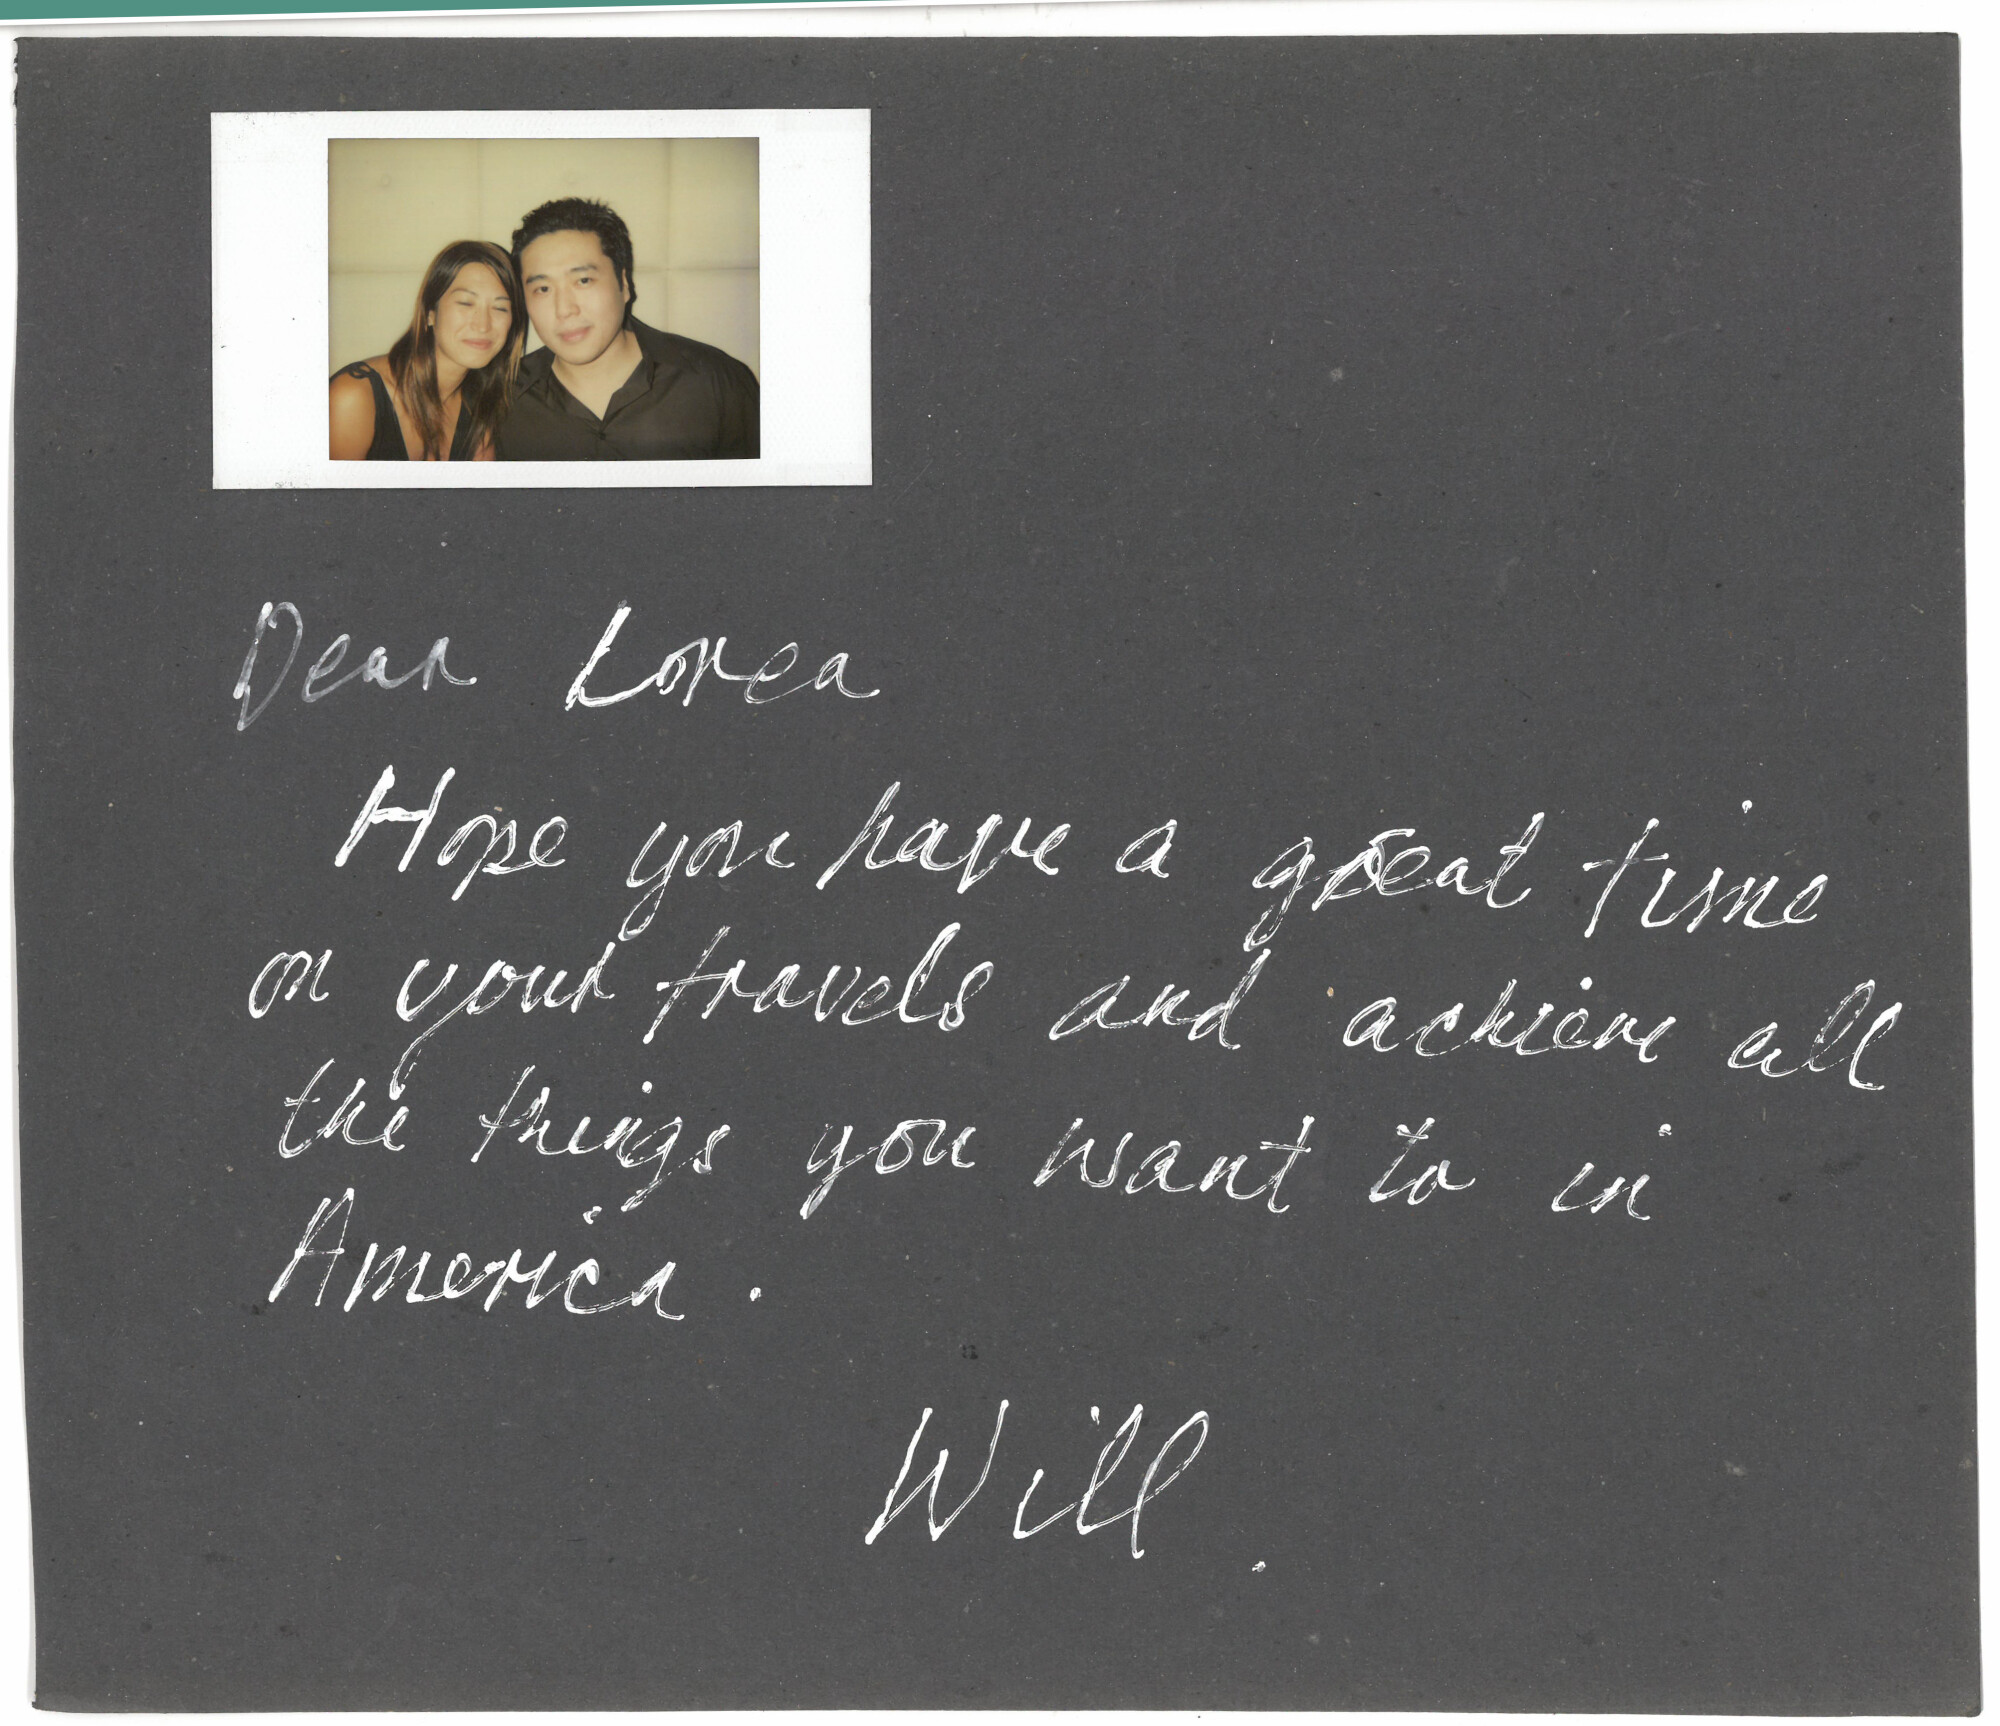 Dear Lorea
Hope you have a great time
on your travels and achieve all
the things you want to in
America.
Will.